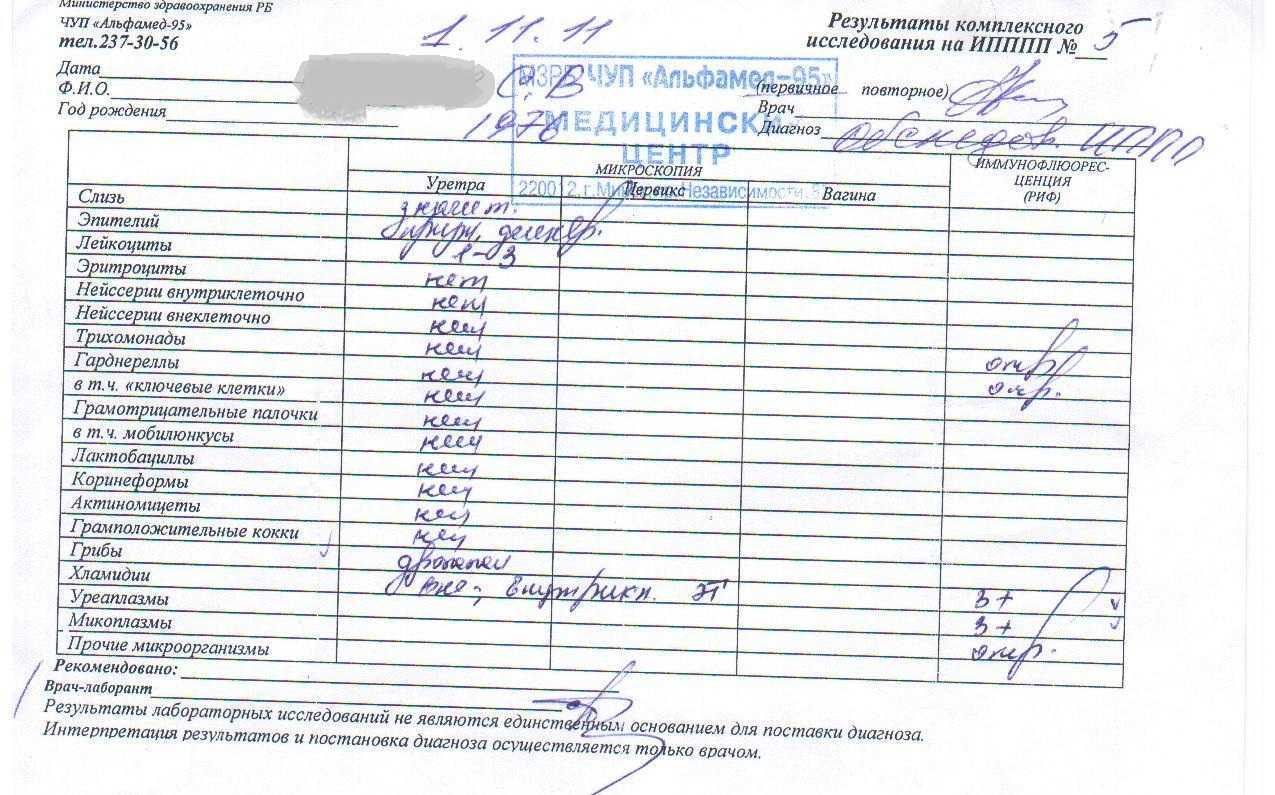 Министерство здравоохранения РБ
ЧУП «Альфамед-95»
тел.237-30-56
1.11.11
Результаты комплексного
исследования на ИПППП № 5
Дата
Ф.И.О. С. В
Год рождения 1976
МЗРБ ЧУП «Альфамед-95»
МЕДИЦИНСКИЙ
ЦЕНТР
220012, г.Минск, Независимости, 8
(первичное повторное)
Врач
Диагноз обследов. ИППП
МИКРОСКОПИЯ
ИММУНОФЛЮОРЕС-
ЦЕНЦИЯ
(РИФ)
Уретра Цервикс Вагина
Слизь значит.
Эпителий
Лейкоциты 1-3
Эритроциты нет
Нейссерии внутриклеточно нет
Нейссерии внеклеточно нет
Трихомонады нет отр
Гарднереллы нет отр.
в т.ч. «ключевые клетки» нет
Грамотрицательные палочки нет
в т.ч. мобилюнкусы нет
Лактобациллы нет
Коринеформы нет
Актиномицеты нет
Грамположительные кокки нет
Грибы
Хламидии вне-, внутрикл.
Уреаплазмы 3+
Микоплазмы 3+
Прочие микроорганизмы отр.
Рекомендовано:
Врач-лаборант
Результаты лабораторных исследований не являются единственным основанием для поставки диагноза.
Интерпретация результатов и постановка диагноза осуществляется только врачом.